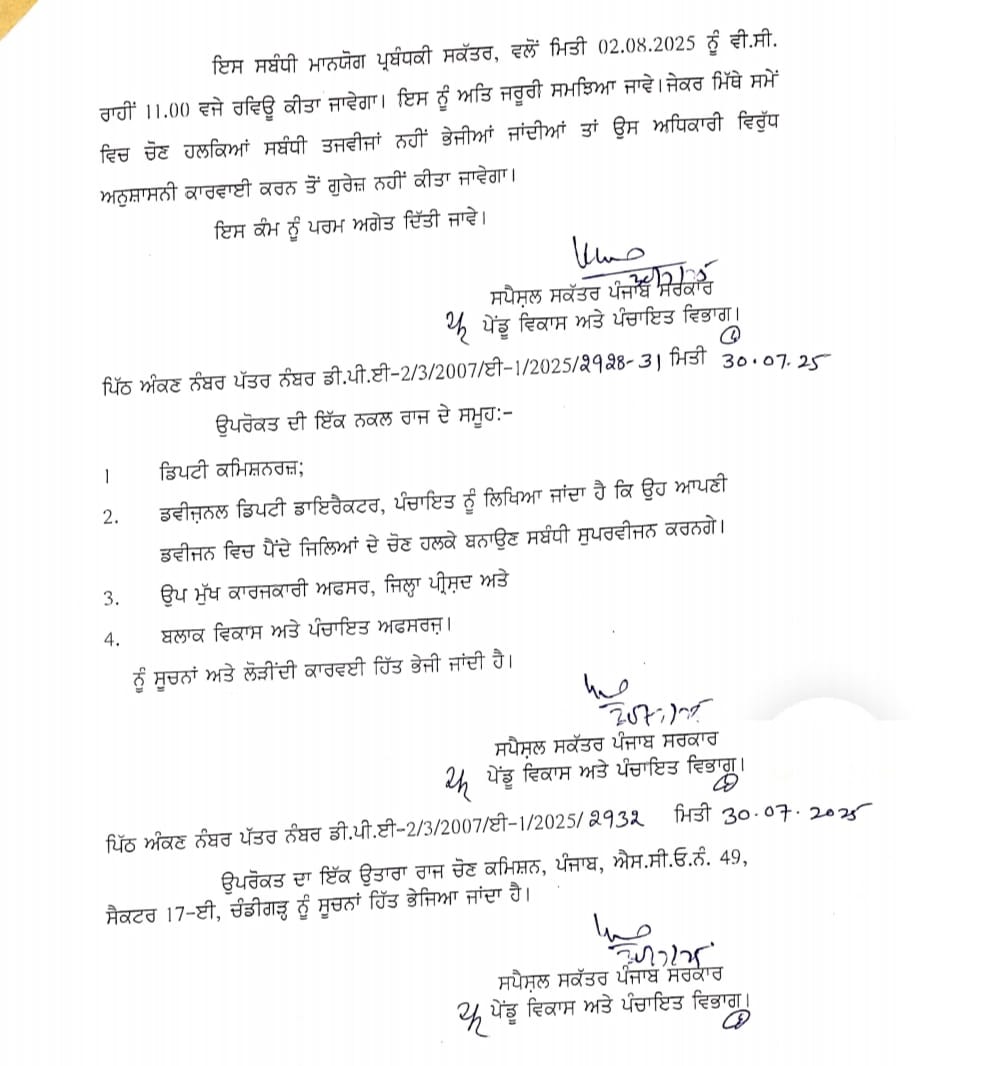 ਇਸ ਸਬੰਧੀ ਮਾਨਯੋਗ ਪ੍ਰਬੰਧਕੀ ਸਕੱਤਰ, ਵਲੋਂ ਮਿਤੀ 02.08.2025 ਨੂੰ ਵੀ.ਸੀ.
ਰਾਹੀਂ 11.00 ਵਜੇ ਰਵਿਊ ਕੀਤਾ ਜਾਵੇਗਾ। ਇਸ ਨੂੰ ਅਤਿ ਜਰੂਰੀ ਸਮਝਿਆ ਜਾਵੇ।ਜੇਕਰ ਮਿੱਥੇ ਸਮੇਂ
ਵਿਚ ਚੋਣ ਹਲਕਿਆਂ ਸਬੰਧੀ ਤਜਵੀਜਾਂ ਨਹੀਂ ਭੇਜੀਆਂ ਜਾਂਦੀਆਂ ਤਾਂ ਉਸ ਅਧਿਕਾਰੀ ਵਿਰੁੱਧ
ਅਨੁਸ਼ਾਸਨੀ ਕਾਰਵਾਈ ਕਰਨ ਤੋਂ ਗੁਰੇਜ਼ ਨਹੀਂ ਕੀਤਾ ਜਾਵੇਗਾ।
ਇਸ ਕੰਮ ਨੂੰ ਪਰਮ ਅਗੇਤ ਦਿੱਤੀ ਜਾਵੇ।
ਸਪੈਸ਼ਲ ਸਕੱਤਰ ਪੰਜਾਬ ਸਰਕਾਰ
ਪੇਂਡੂ ਵਿਕਾਸ ਅਤੇ ਪੰਚਾਇਤ ਵਿਭਾਗ।
ਪਿੱਠ ਅੰਕਣ ਨੰਬਰ ਪੱਤਰ ਨੰਬਰ ਡੀ.ਪੀ.ਈ-2/3/2007/ਈ-1/2025/2928-31 ਮਿਤੀ 30.07.25
ਉਪਰੋਕਤ ਦੀ ਇੱਕ ਨਕਲ ਰਾਜ ਦੇ ਸਮੂਹ:-
1 ਡਿਪਟੀ ਕਮਿਸ਼ਨਰਜ਼;
2. ਡਵੀਜ਼ਨਲ ਡਿਪਟੀ ਡਾਇਰੈਕਟਰ, ਪੰਚਾਇਤ ਨੂੰ ਲਿਖਿਆ ਜਾਂਦਾ ਹੈ ਕਿ ਉਹ ਆਪਣੀ
ਡਵੀਜਨ ਵਿਚ ਪੈਂਦੇ ਜਿਲਿਆਂ ਦੇ ਚੋਣ ਹਲਕੇ ਬਨਾਉਣ ਸਬੰਧੀ ਸੁਪਰਵੀਜਨ ਕਰਨਗੇ।
3. ਉਪ ਮੁੱਖ ਕਾਰਜਕਾਰੀ ਅਫਸਰ, ਜਿਲ੍ਹਾ ਪ੍ਰੀਸ਼ਦ ਅਤੇ
4. ਬਲਾਕ ਵਿਕਾਸ ਅਤੇ ਪੰਚਾਇਤ ਅਫਸਰਜ਼।
ਨੂੰ ਸੂਚਨਾਂ ਅਤੇ ਲੋੜੀਂਦੀ ਕਾਰਵਈ ਹਿੱਤ ਭੇਜੀ ਜਾਂਦੀ ਹੈ।
ਸਪੈਸ਼ਲ ਸਕੱਤਰ ਪੰਜਾਬ ਸਰਕਾਰ
ਪੇਂਡੂ ਵਿਕਾਸ ਅਤੇ ਪੰਚਾਇਤ ਵਿਭਾਗ।
ਪਿੱਠ ਅੰਕਣ ਨੰਬਰ ਪੱਤਰ ਨੰਬਰ ਡੀ.ਪੀ.ਈ-2/3/2007/ਈ-1/2025/ 2932 ਮਿਤੀ 30.07.2025
ਉਪਰੋਕਤ ਦਾ ਇੱਕ ਉਤਾਰਾ ਰਾਜ ਚੋਣ ਕਮਿਸ਼ਨ, ਪੰਜਾਬ, ਐਸ.ਸੀ.ਓ.ਨੰ. 49,
ਸੈਕਟਰ 17-ਈ, ਚੰਡੀਗੜ੍ਹ ਨੂੰ ਸੂਚਨਾਂ ਹਿੱਤ ਭੇਜਿਆ ਜਾਂਦਾ ਹੈ।
ਸਪੈਸ਼ਲ ਸਕੱਤਰ ਪੰਜਾਬ ਸਰਕਾਰ
ਪੇਂਡੂ ਵਿਕਾਸ ਅਤੇ ਪੰਚਾਇਤ ਵਿਭਾਗ।